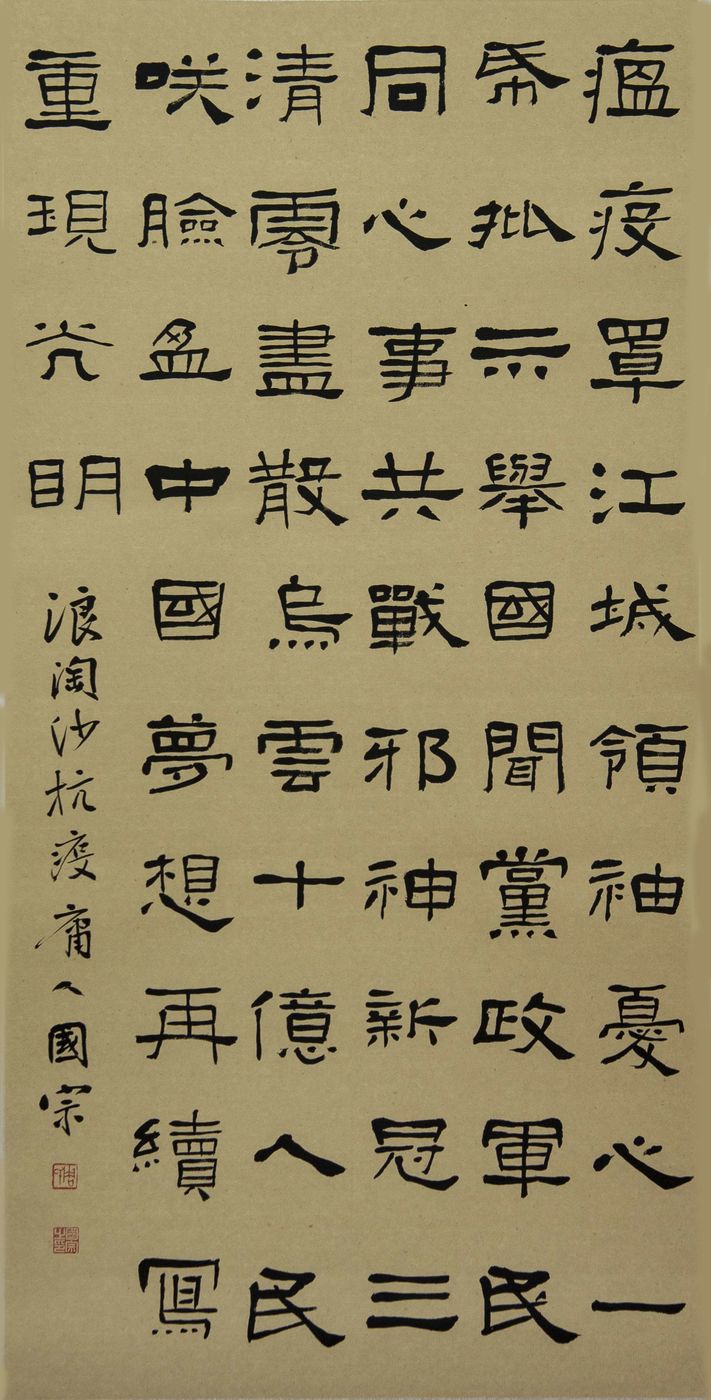 瘟疫罩江城領袖憂心一
帋批示舉國聞黨政軍民
同心事共戰邪神新冠三
清零盡散烏雲十億人民
咲臉盈中國夢想再續寫
重現光眀
浪淘沙抗疫庸人國宗